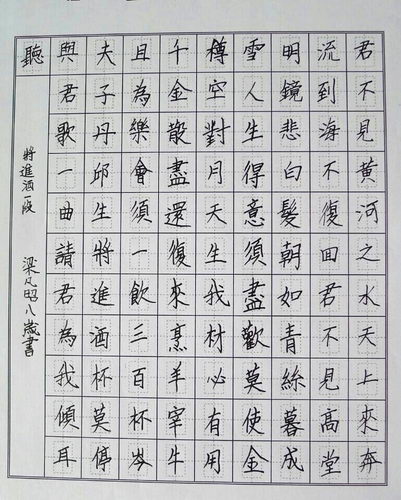 君不見黃河之水天上來奔
流到海不復囬君不見高堂
明鏡悲白髮朝如青絲暮成
雪人生得意須盡歡莫使金
樽空對月天生我材必有用
千金散盡還復來烹羊宰牛
且為樂會須一飲三百杯岑
夫子丹邱生將進酒杯莫停
與君歌一曲請君為我傾耳
聽
將進酒段 梁凡昭八歲書